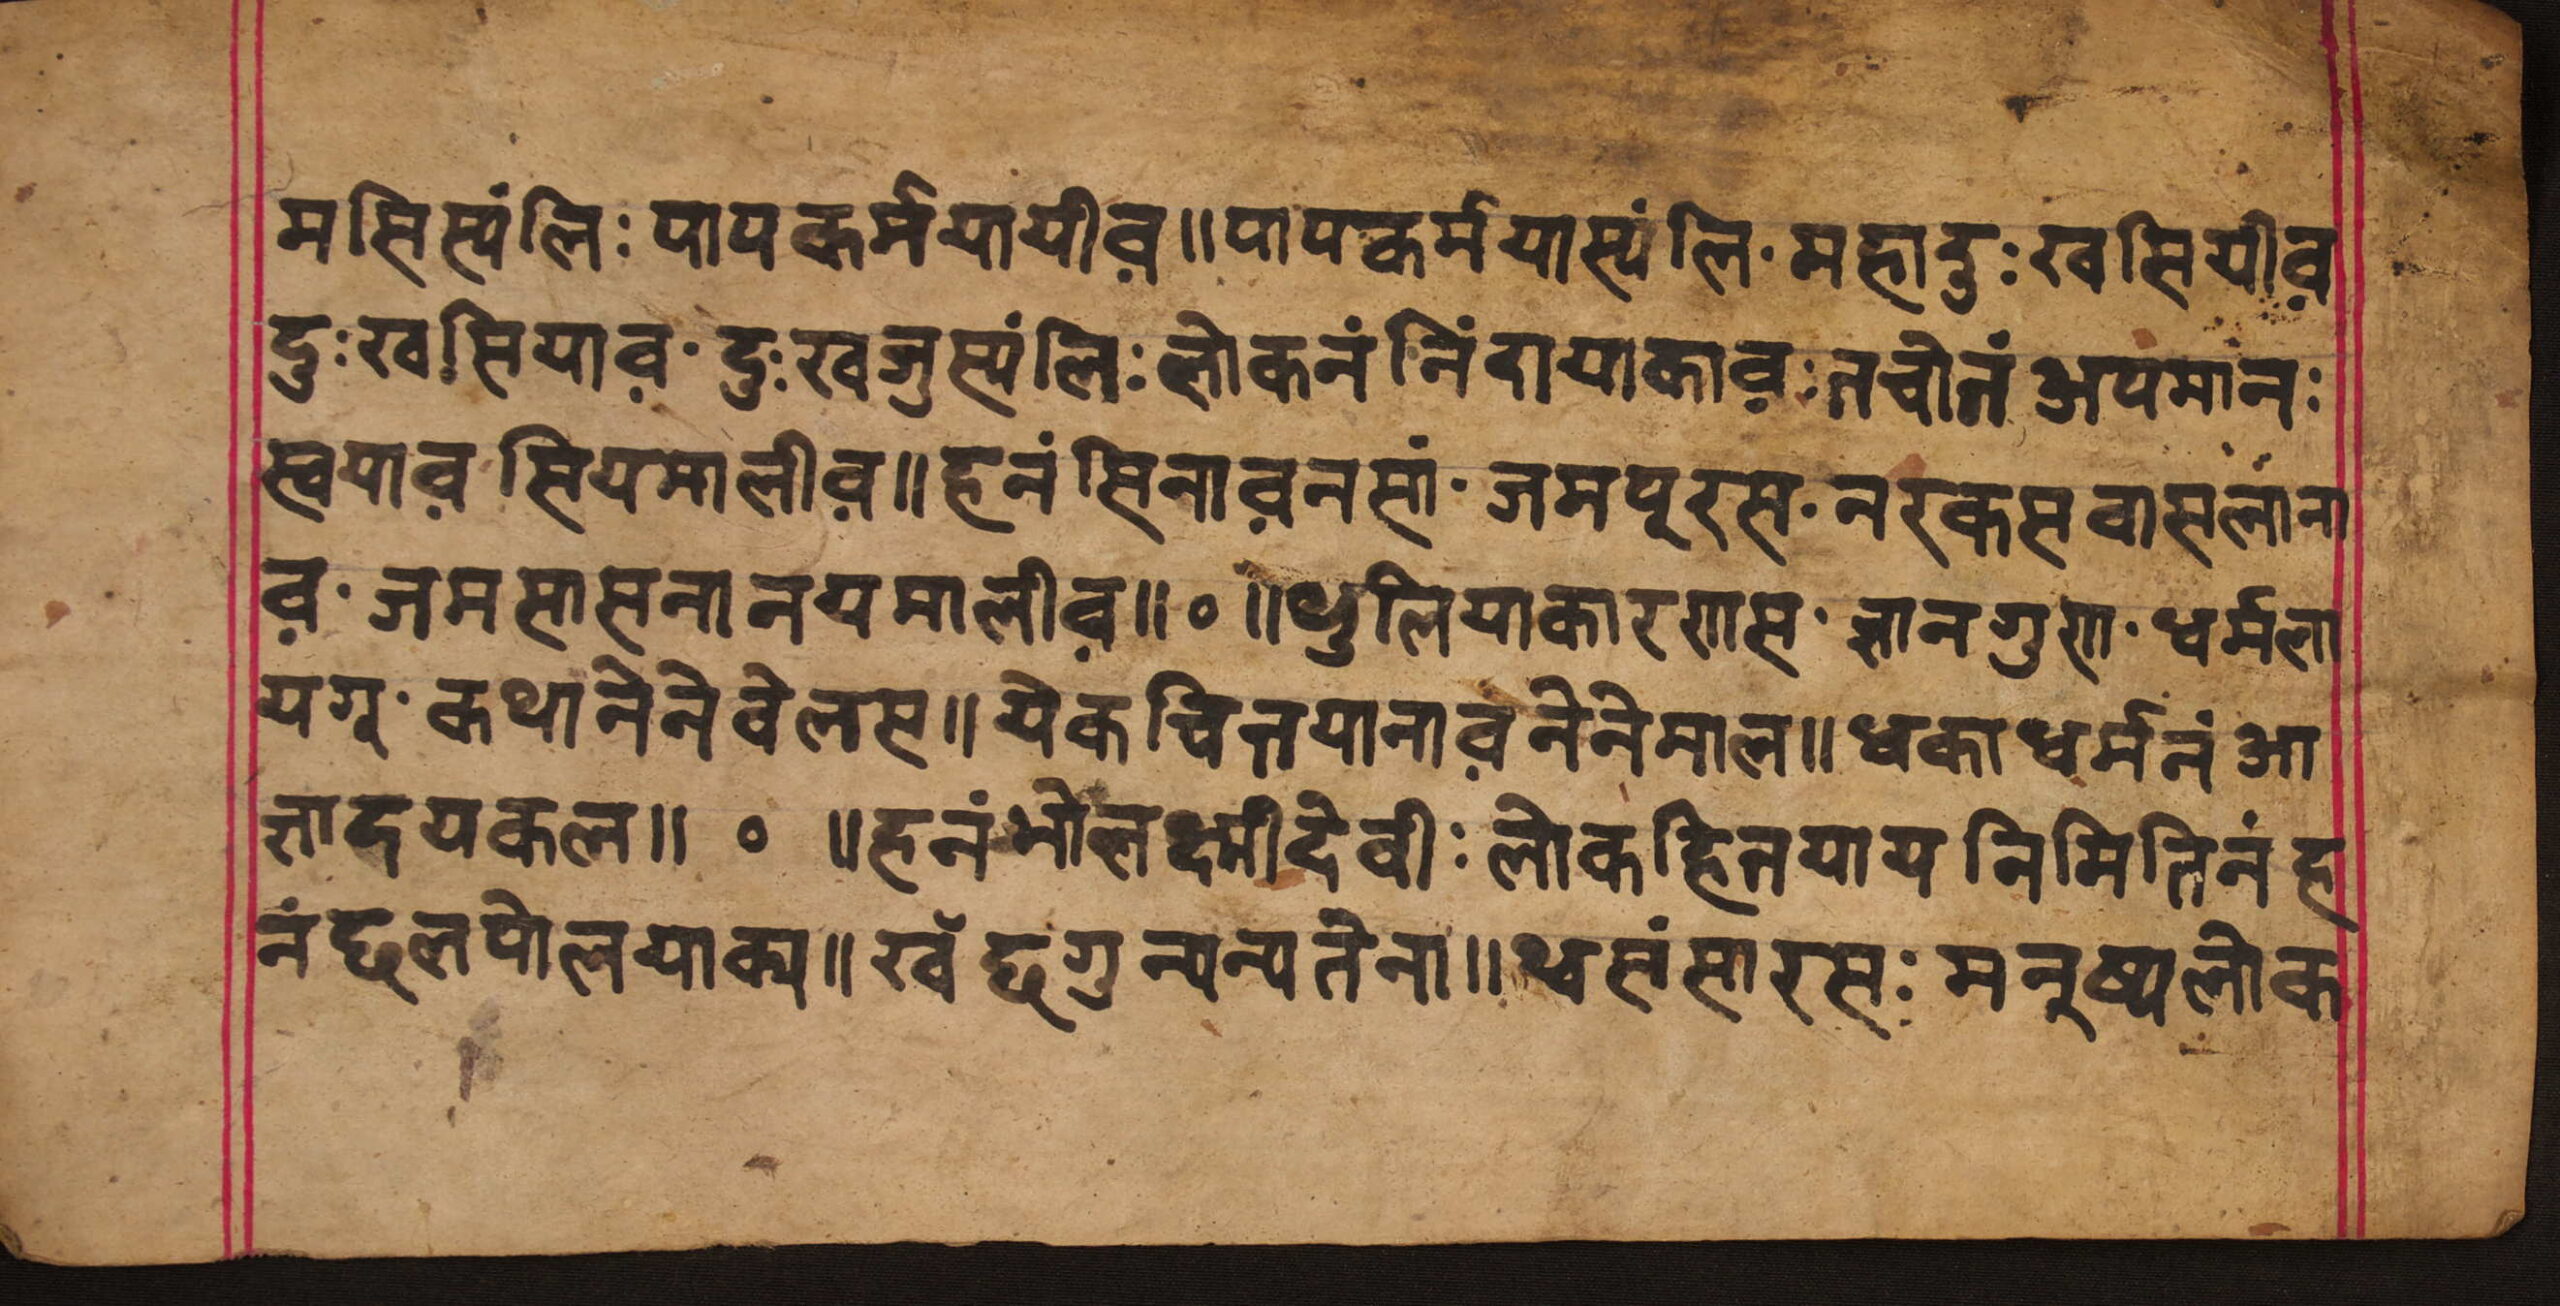 मसिस्यंलिः पापकर्मयायीव़॥ पापकर्मयास्यंलि· महादुःखसियीव़
दुःखसियाव़· दुःखजुस्यंलिः लोकनं निंदायाकाव़ः तचोतं अपमानः
स्वयाव़ सियमालीव़॥ हनं सिनाव़नसां· जमपूरस· नरकस वासलाना
व़· जमसासनानयमालीव़॥ ० ॥ थुलियाकारणस· ज्ञानगुण· धर्मला
यगू· कथानेनेवेलस॥ येकचित्तयानाव़ नेनेमाल॥ थ्वकाधर्मनं आ
ज्ञादयकल॥ ० ॥ हनं भोलक्ष्मीदेवीः लोकहितयाय निमितिनं ह
नं छलपोलयाक्य॥ खँ छगु न्यन्यतेना॥ थ्वसंसारसः मनूष्यलोक